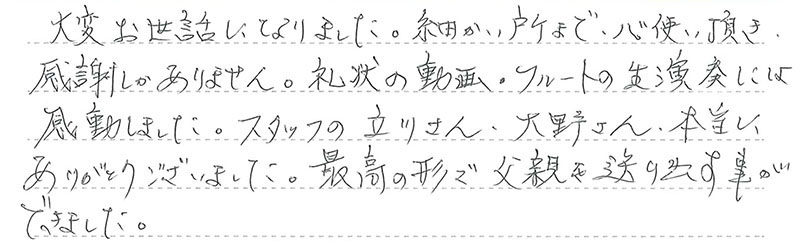 大変お世話になりました。細かい所まで、心使い頂き、
感謝しかありません。礼状の動画。フルートの生演奏には
感動しました。スタッフの立川さん、大野さん、本当に
ありがとうございました。最高の形で父親を送り出す事が
できました。